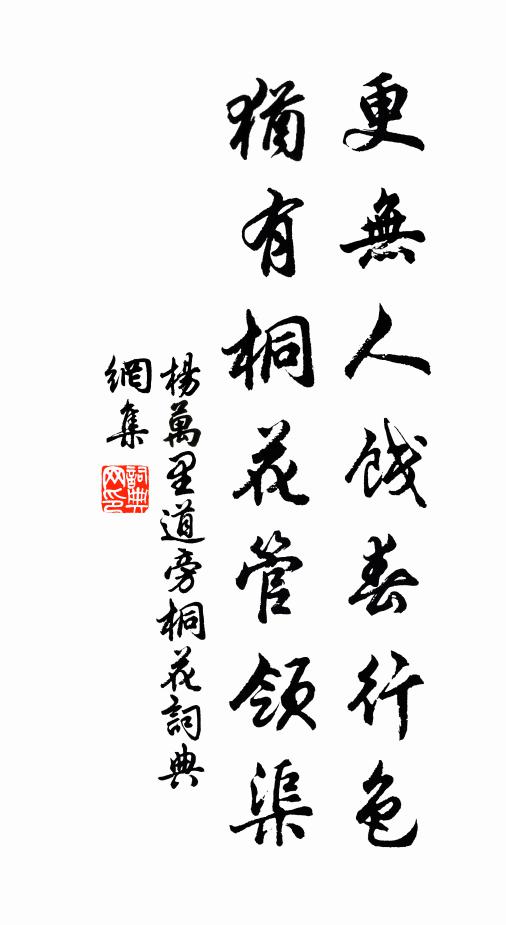 更無人餞春行色
猶有桐花管領渠
楊萬里道旁桐花詞典
網集
詞典
网印